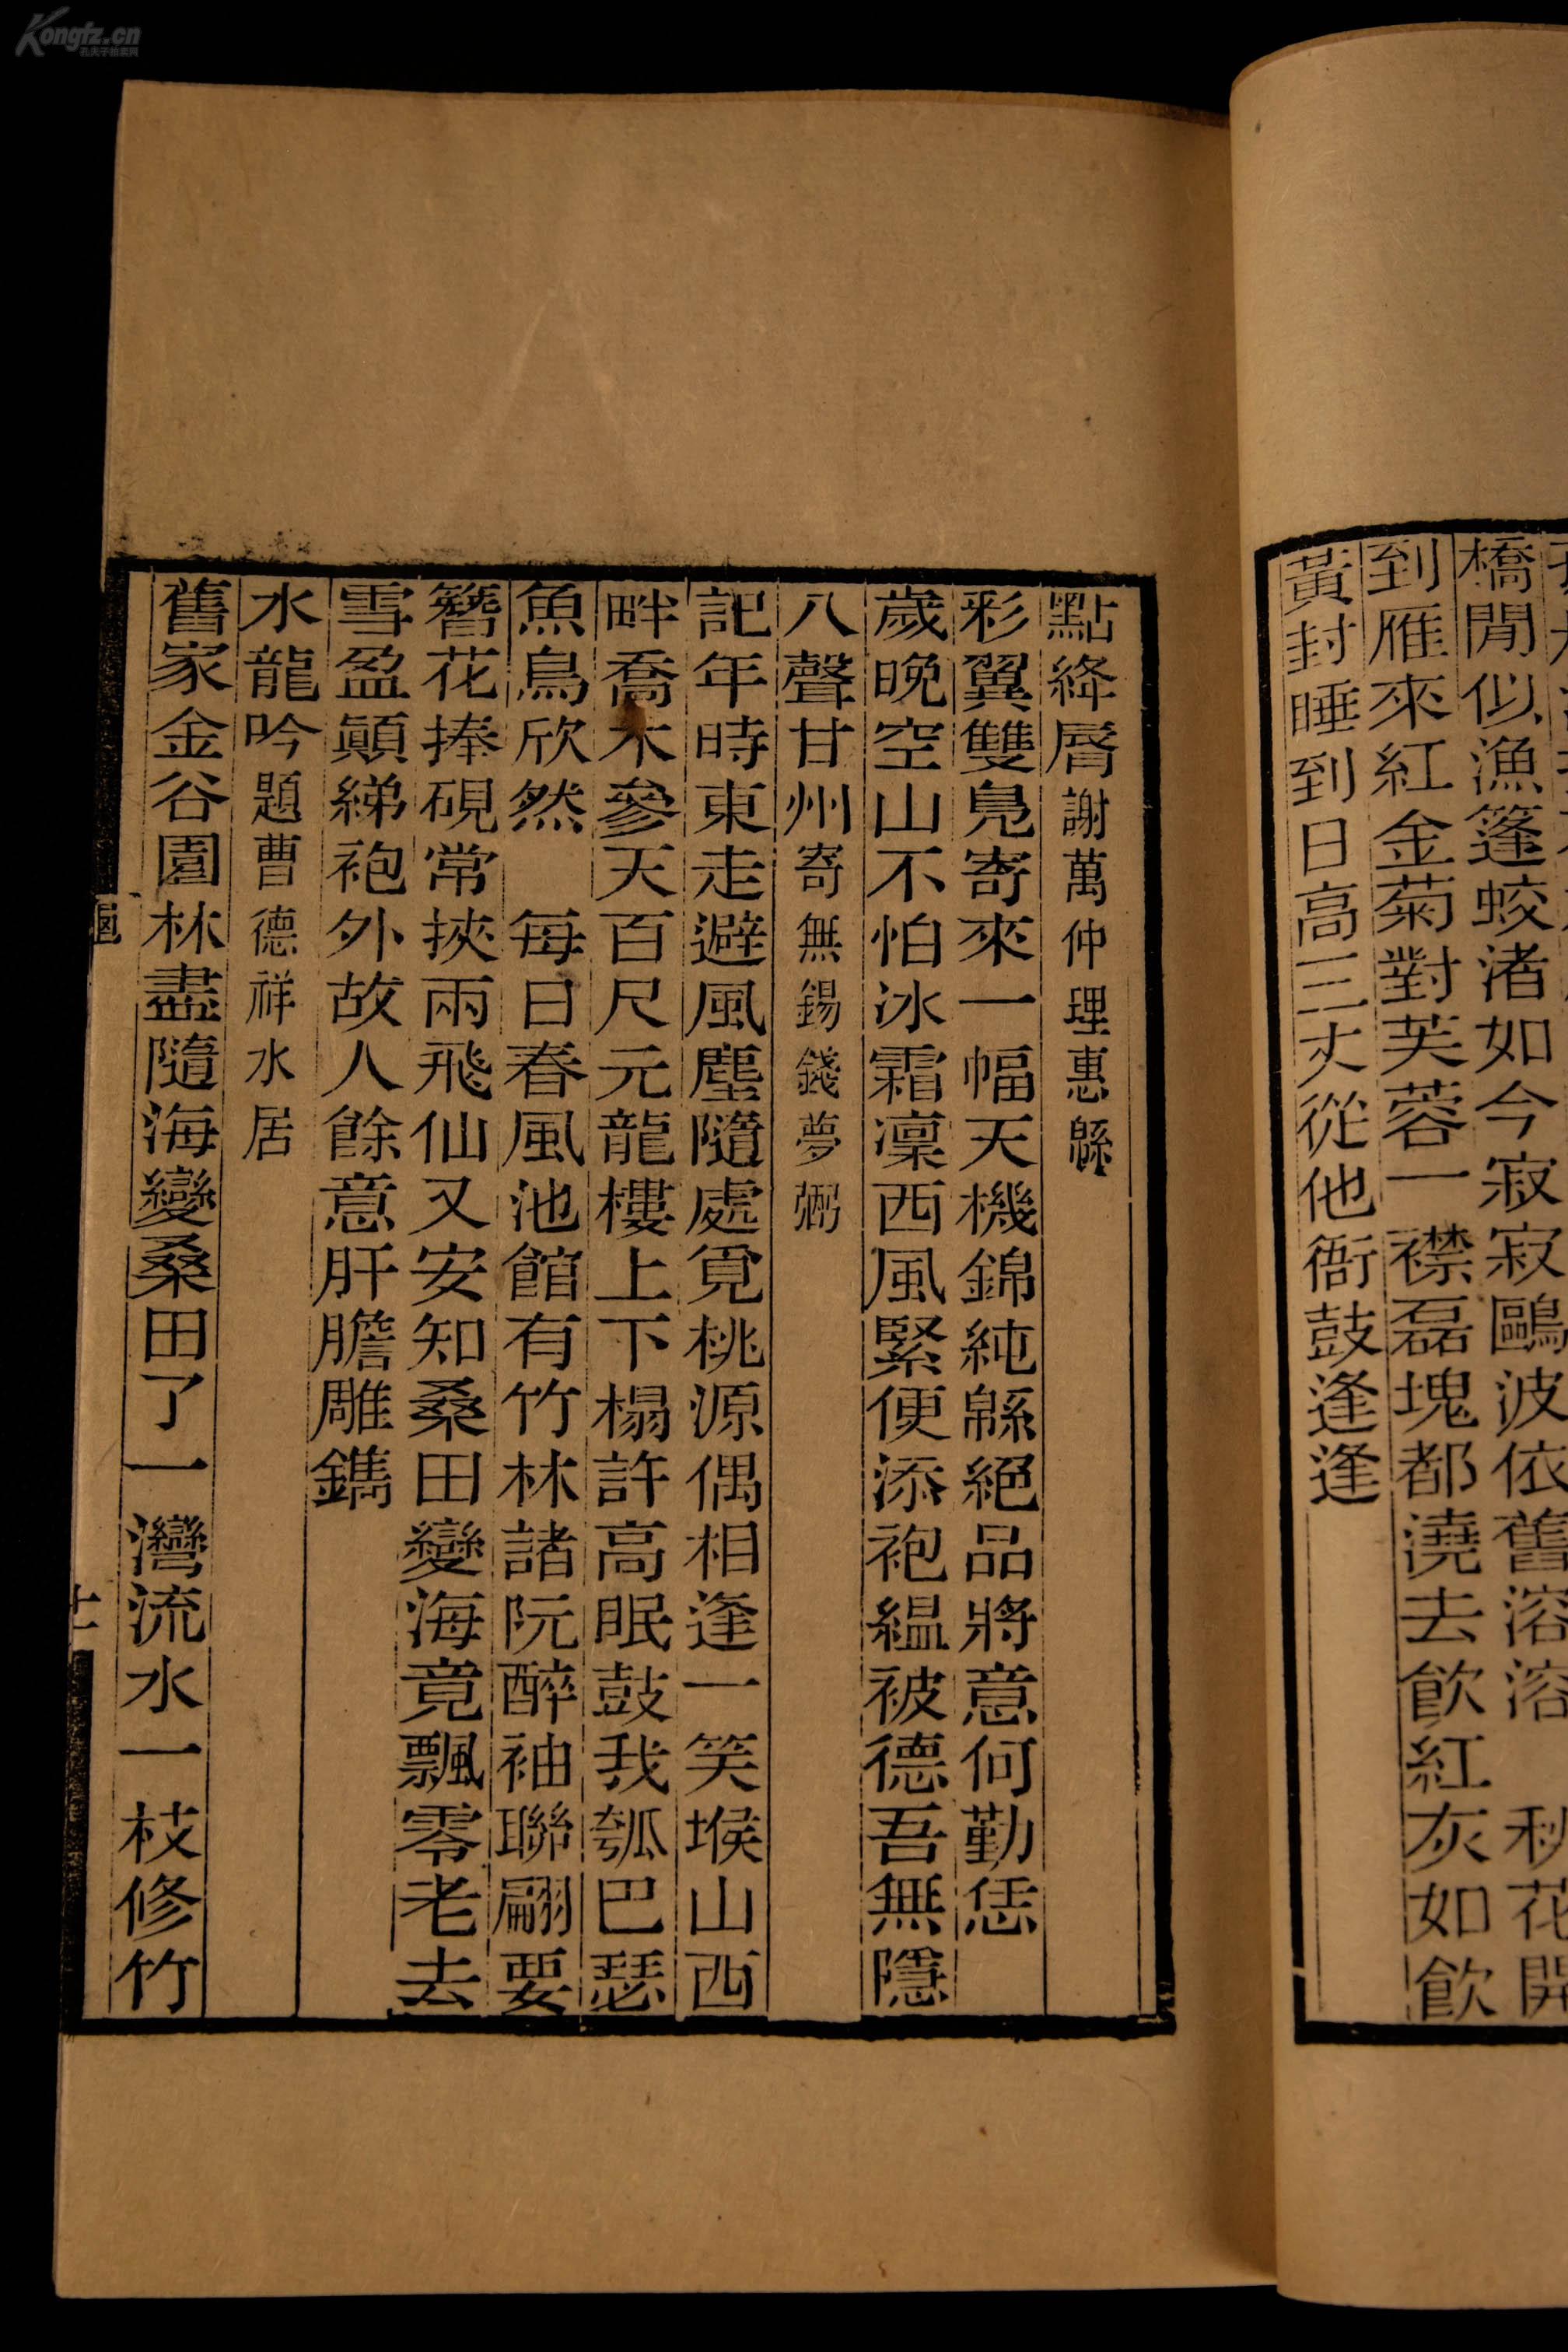 橋閒似漁篷蛟渚如今寂寂鷗波依舊溶溶　秋花開
到雁來紅金菊對芙蓉一襟磊塊都澆去飲紅灰如飲
黃封睡到日高三丈從他衙鼓逢逢
點絳脣謝萬仲理惠緜
彩翼雙鳧寄來一幅天機錦純緜絕品將意何勤恁
歲晚空山不怕冰霜凜西風緊便添袍縕被德吾無隱
八聲甘州寄無錫錢夢弼
記年時東走避風塵隨處覓桃源偶相逢一笑堠山西
畔喬木參天百尺元龍樓上下榻許高眠鼓我瓠巴瑟
魚鳥欣然　每日春風池館有竹林諸阮醉袖聯翩要
簪花捧硯常挾兩飛仙又安知桑田變海竟飄零老去
雪盈顛綈袍外故人餘意肝膽雕鐫
水龍吟題曹德祥水居
舊家金谷園林盡隨海變桑田了一灣流水一枝修竹
Kongfz.cn
孔夫子拍卖网